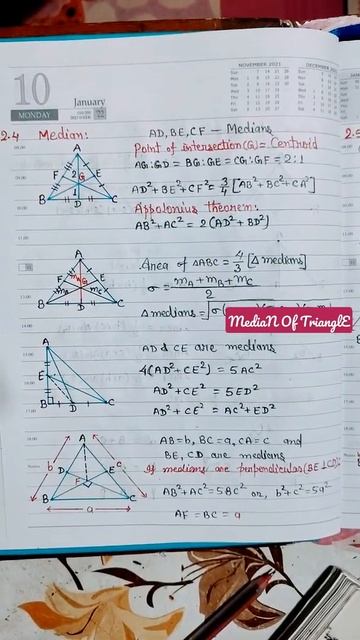 10
MONDAY
January
NOVEMBER 2021
2.4 Median:
AD, BE, CF — Medians
Point of intersection (G) = Centroid
AG:GD = BG:GE = CG:GF = 2:1
AD²+BE²+CF² = 3/4 [AB²+BC²+CA²]
Appolonius theorem:
AB²+AC² = 2(AD²+BD²)
A
F
E
G
2
1
B
D
C
Area of △ABC = 4/3 [△ medians]
σ = (mA+mB+mC)/2
△ medians = √σ(
MediaN Of TrianglE
A
F
E
G
mA
mB
mC
B
D
C
AD & CE are medians
4(AD²+CE²) = 5AC²
AD²+CE² = 5ED²
AD²+CE² = AC²+ED²
A
E
B
D
C
AB=b, BC=a, CA=c and
BE, CD are medians
If medians are perpendicular (BE⊥CD)
AB²+AC²=5BC² or, b²+c²=5a²
AF = BC = a
A
b
c
D
E
F
B
C
a